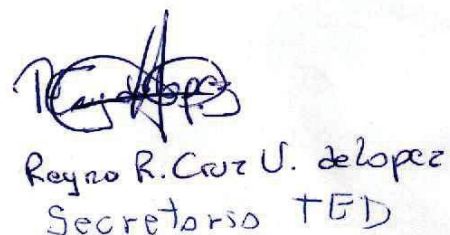 Reyna R. Cruz U. de Lopez
Secretaria TED